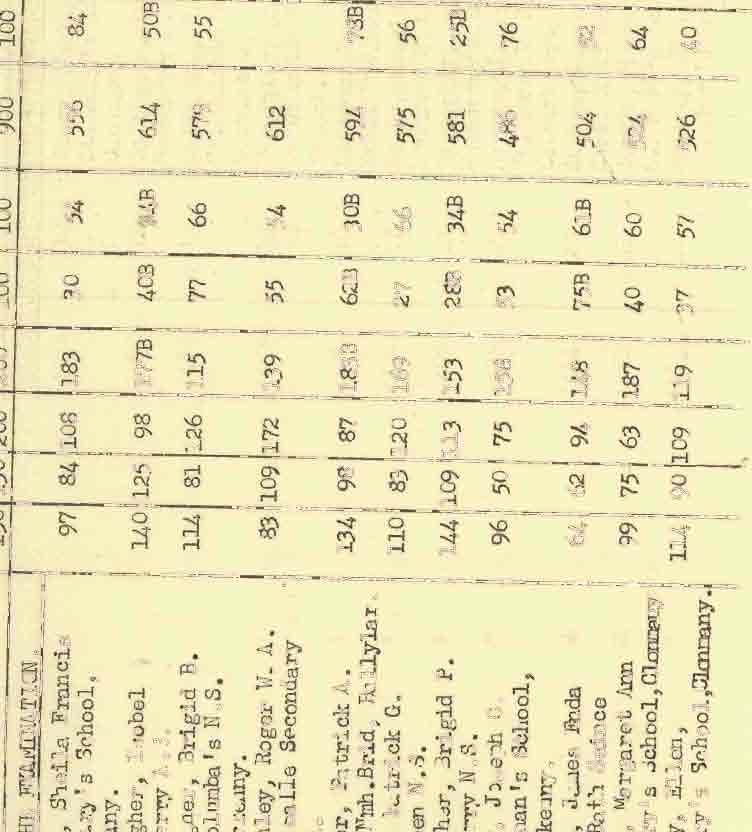 EXAMINATION. 100 900 100
, Sheila Francis 97 84 108 183 30 54 556 84
ry's School,
any.
gher, Isobel 140 125 98 177B 40B 614 50B
erry
ner, Brigid B. 114 81 126 115 77 66 579 55
olumba's N.S.
ley, Roger W. A. 83 109 172 139 55 54 612
Secondary
r, Patrick A. 134 98 87 62B 30B 594 73B
Patrick G. 110 83 120 169 27 66 575 56
en N.S.
her, Brigid P. 144 109 113 153 28B 34B 581 25B
rry N.S.
, Joseph 96 50 75 158 53 54 486 76
nan's School,
, James Fada 64 62 94 148 75B 61B 504
Rath
Margaret Ann 99 75 63 187 40 60 524 64
y's School, Clonmany
, Ellen, 114 90 109 119 37 57 526 40
y's School, Clonmany.